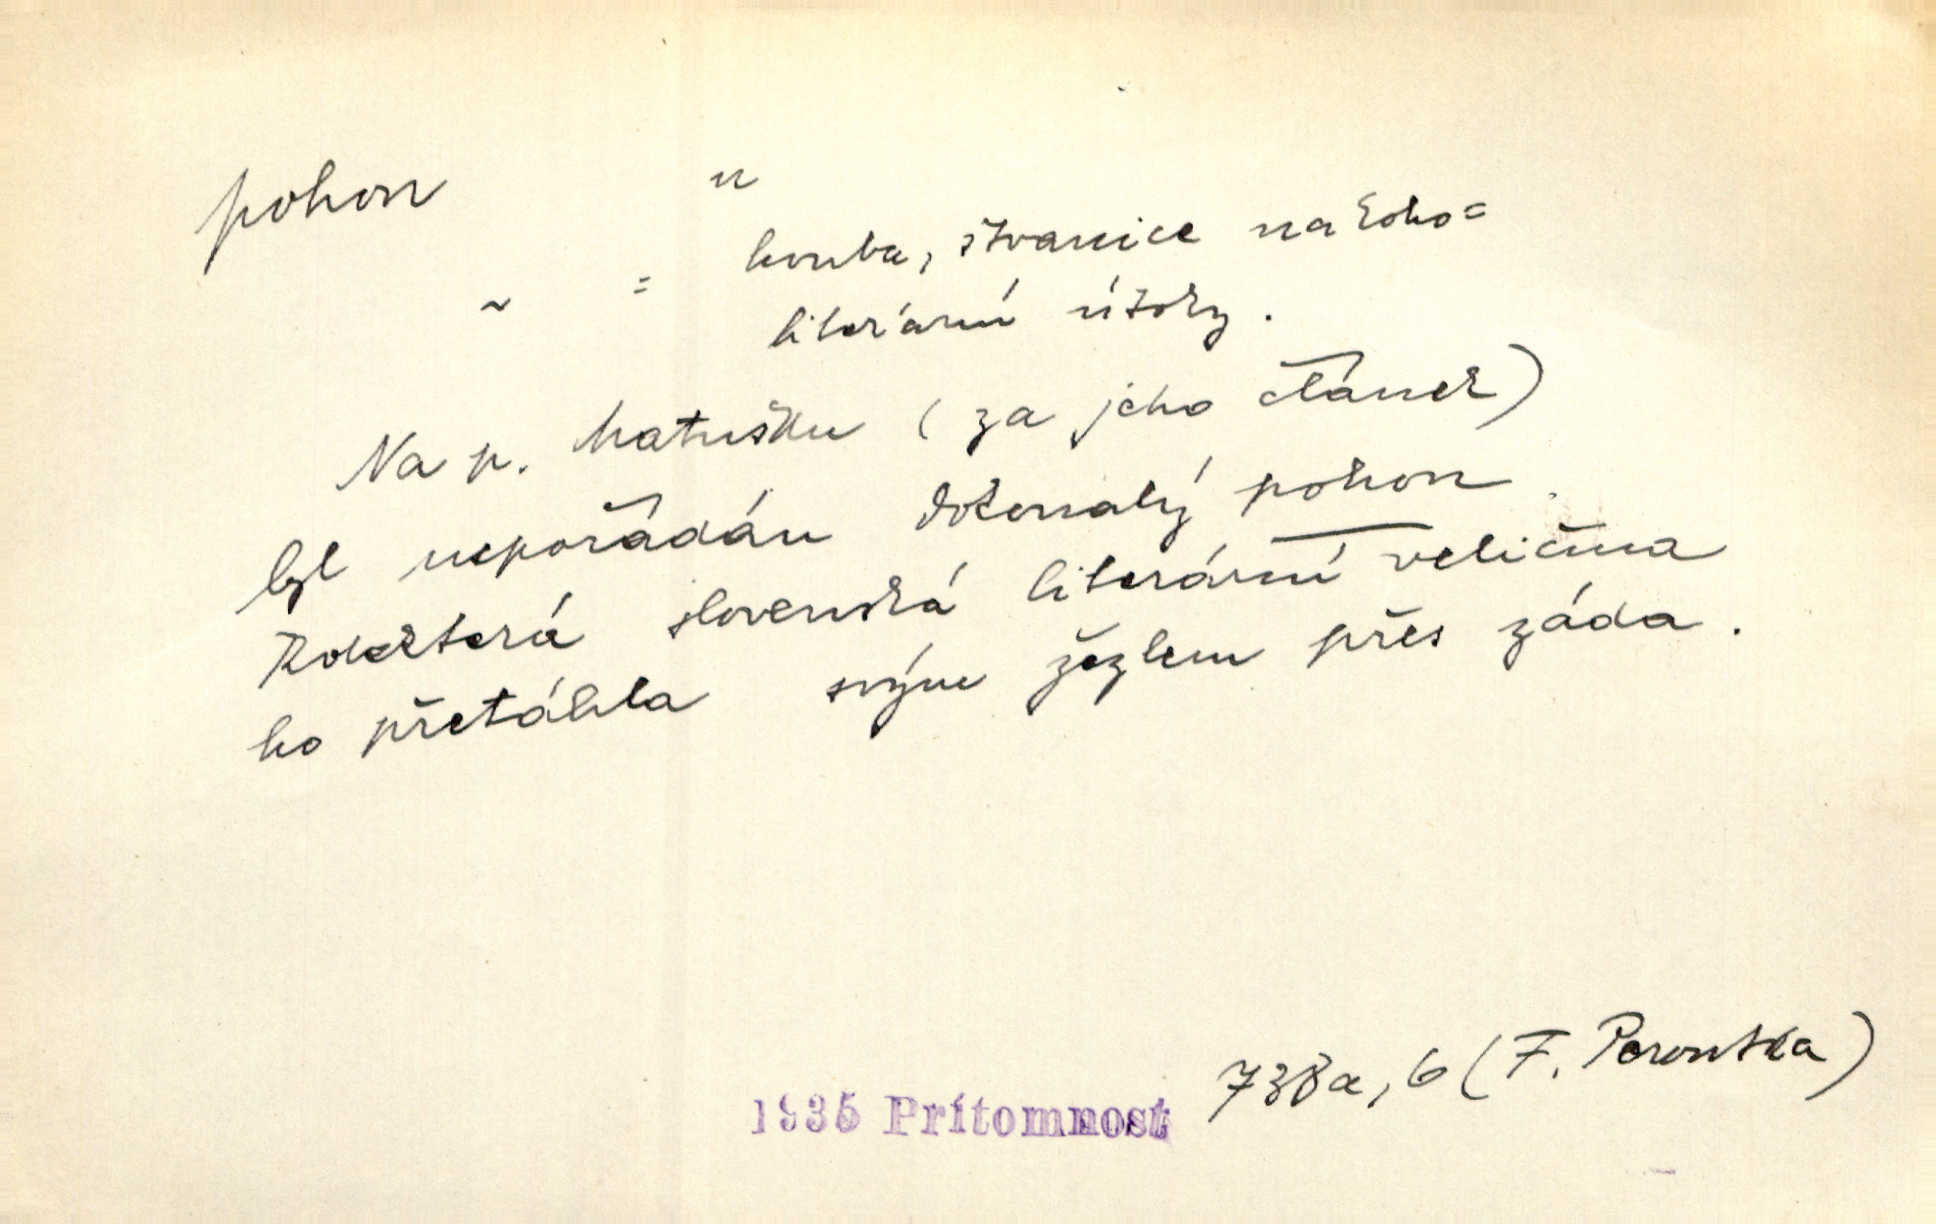 pohon
~ = honba, štvanice na koho =
literární útoky.
Na p. Matušku (za jeho článek)
byl uspořádán dokonalý pohon.
Kdekterá slovenská literární veličina
ho přetáhla svým žezlem přes záda.
1935 Prítomnost 738a, 6 (F. Peroutka)